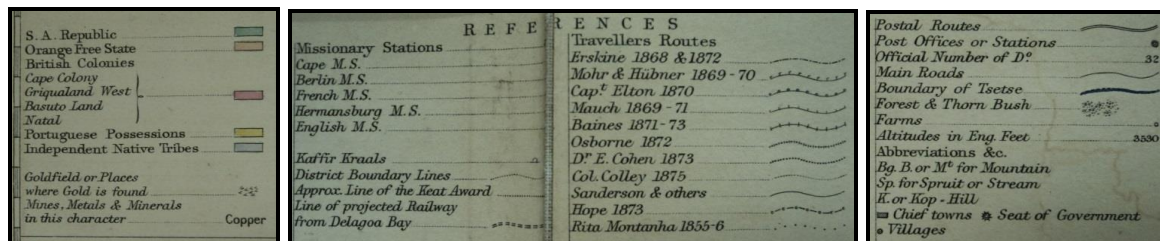 S. A. Republic
Orange Free State
British Colonies
Cape Colony
Griqualand West
Basuto Land
Natal
Portuguese Possessions
Independent Native Tribes
Goldfield or Places
where Gold is found
Mines, Metals & Minerals
in this character Copper
REFERENCES
Missionary Stations
Cape M.S.
Berlin M.S.
French M.S.
Hermansburg M.S.
English M.S.
Kaffir Kraals
District Boundary Lines
Approx. Line of the Keat Award
Line of projected Railway
from Delagoa Bay
Travellers Routes
Erskine 1868 & 1872
Mohr & Hübner 1869-70
Capt. Elton 1870
Mauch 1869-71
Baines 1871-73
Osborne 1872
Dr. E. Cohen 1873
Col. Colley 1875
Sanderson & others
Hope 1873
Rita Montanha 1855-6
Postal Routes
Post Offices or Stations
Official Number of Do. 32
Main Roads
Boundary of Tsetse
Forest & Thorn Bush
Farms
Altitudes in Eng. Feet 3530
Abbreviations &c.
Bg. B. or Mt. for Mountain
Sp. for Spruit or Stream
K. or Kop - Hill
Chief towns Seat of Government
Villages